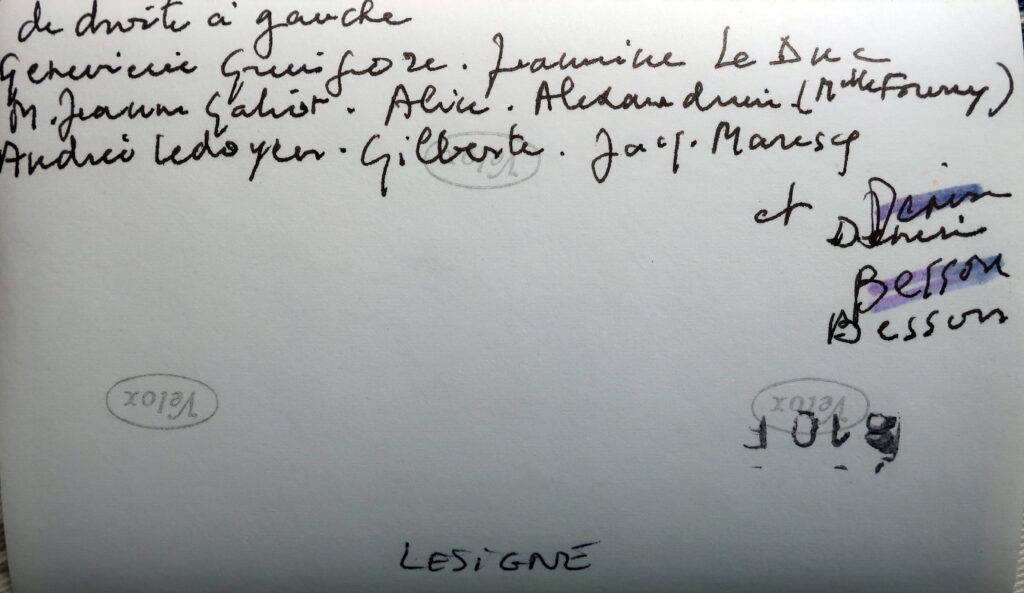 de droite à gauche
Geneviève Jeannine Le Duc
M. Jeanne Galiot. Alice. Alexandrine (Mlle Fourny)
Andrée Ledoyen. Gilberte. Jacq. Maresq
Velox
et Denise
Denise
Besson
Besson
Velox
Velox
LESIGNÉ